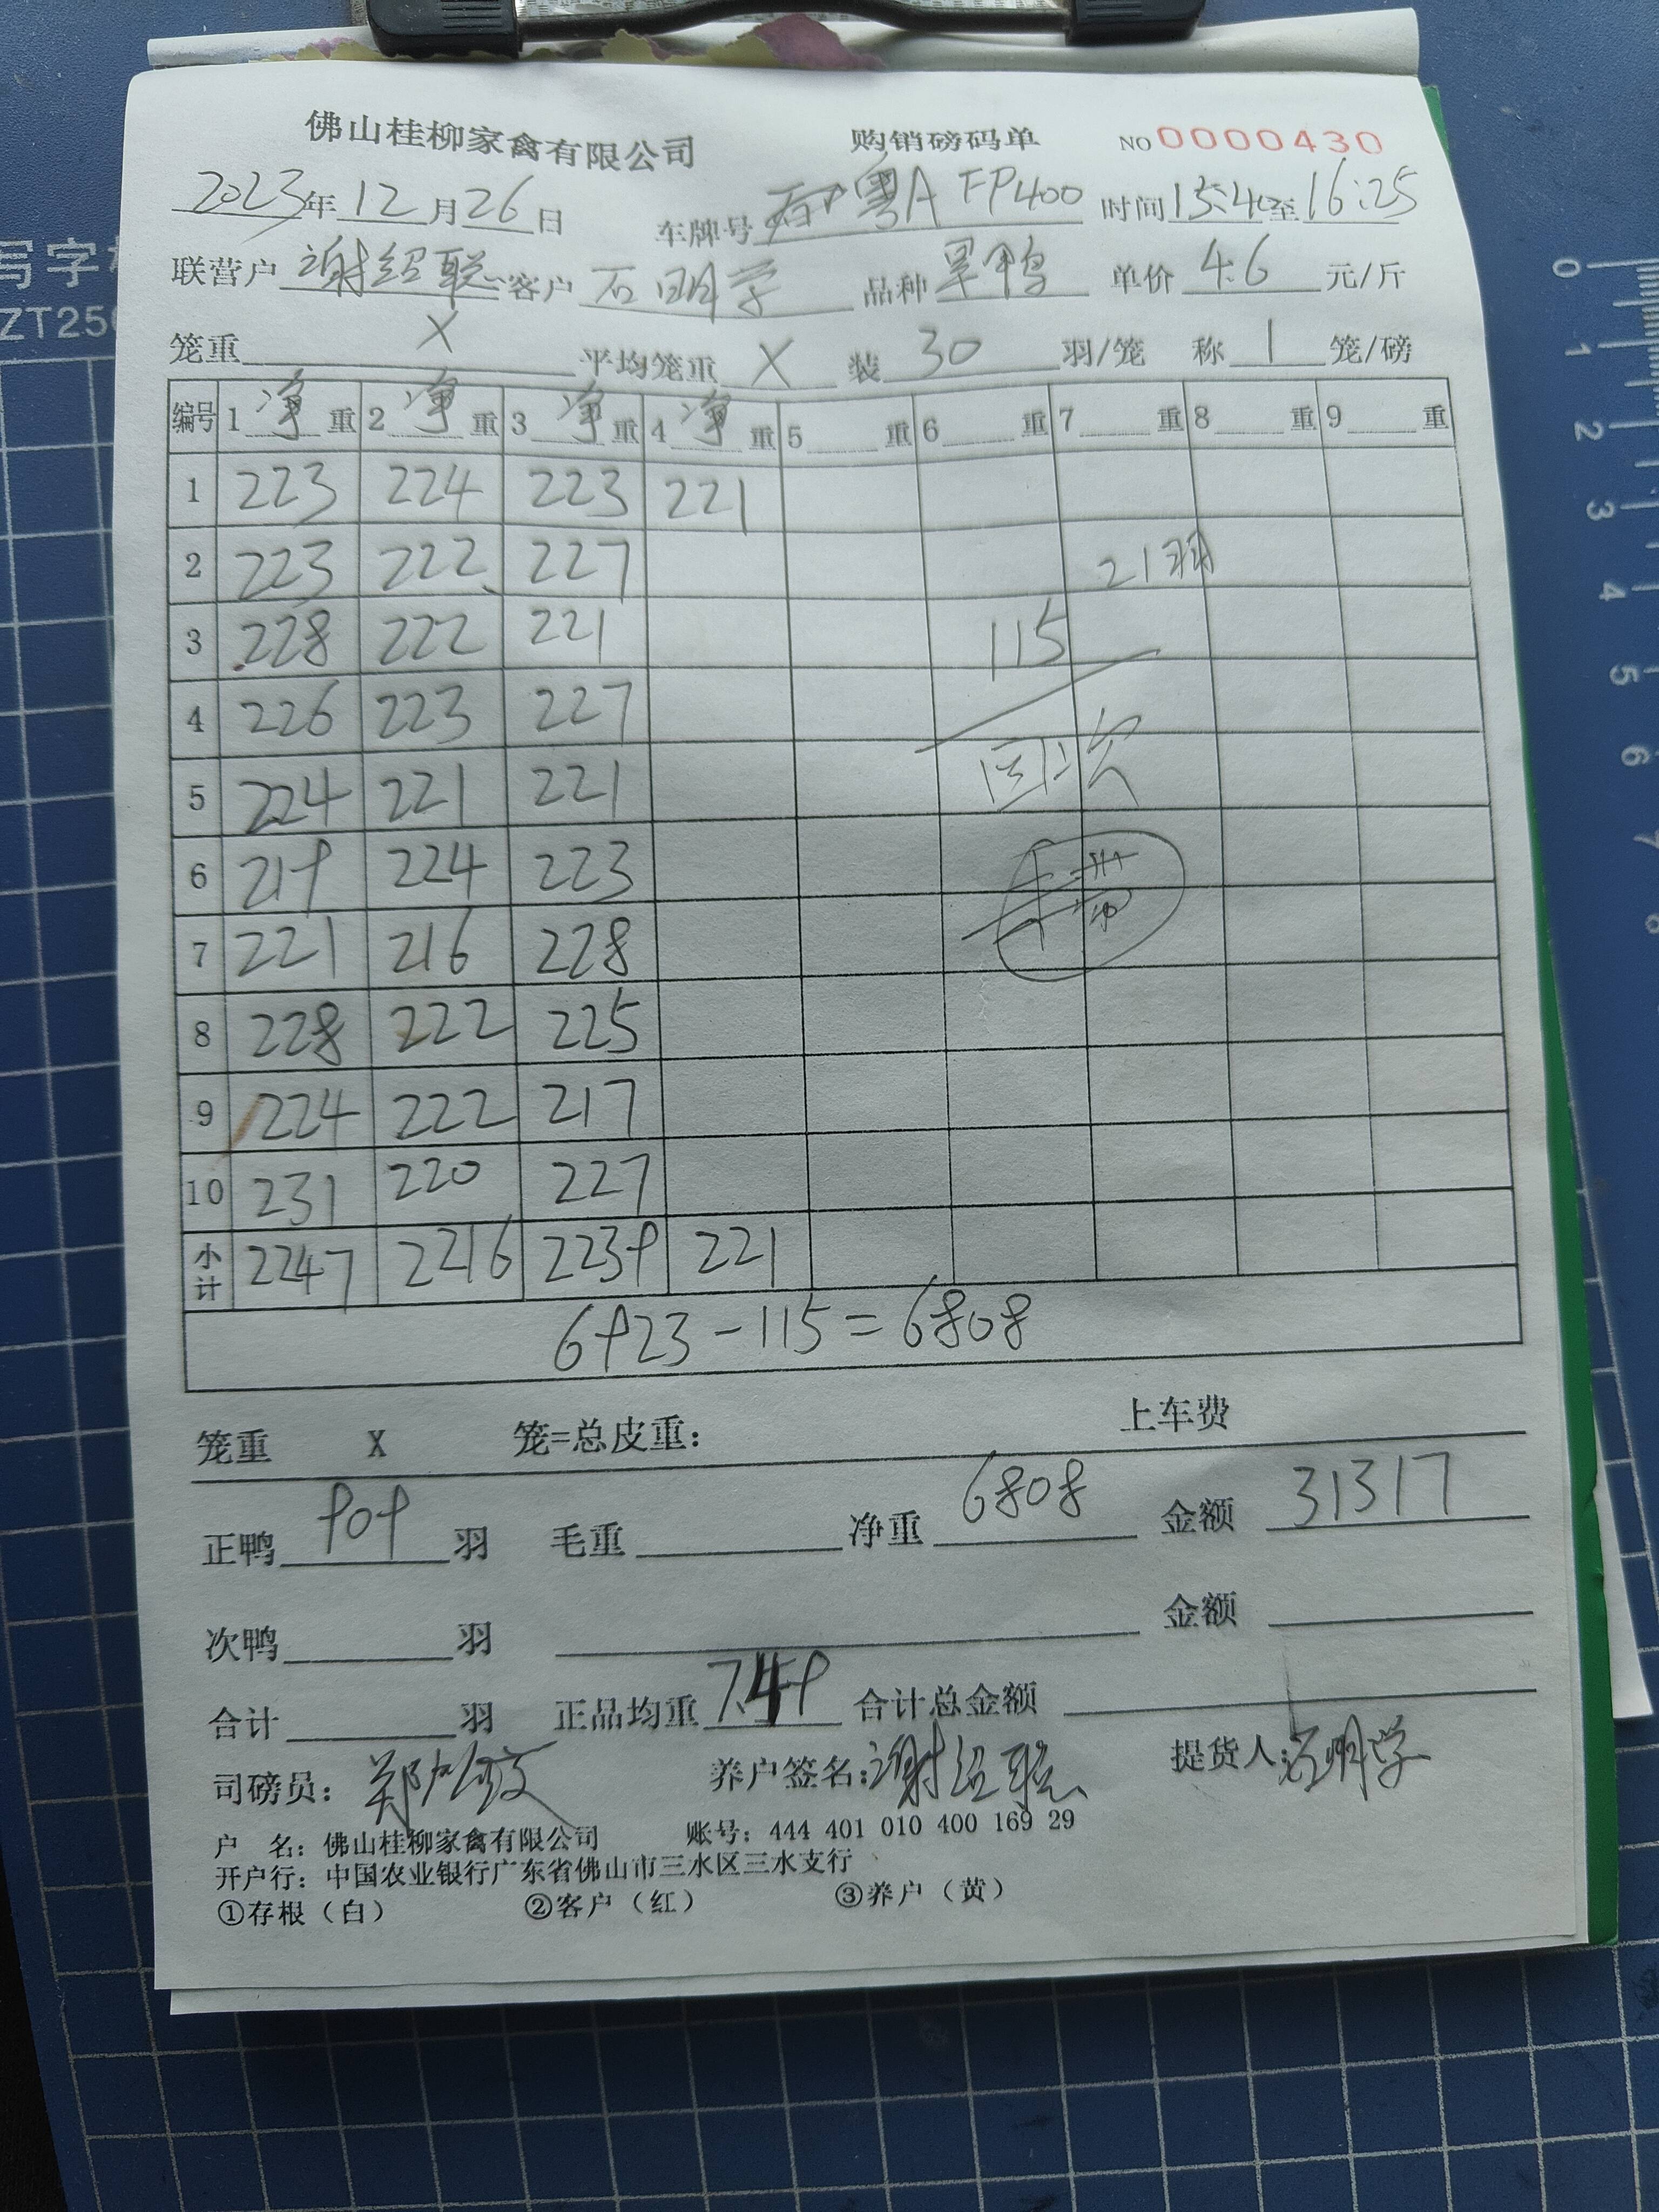 佛山桂柳家禽有限公司 购销磅码单 NO 0000430
2023年12月26日 车牌号 粤A FP400 时间15:40至16:25
联营户 谢绍聪 客户 石明学 品种 旱鸭 单价 4.6 元/斤
笼重 X 平均笼重 X 装 30 羽/笼 称 1 笼/磅
编号 1净重 2净重 3净重 4净重 5 重 6 重 7 重 8 重 9 重
1 223 224 223 221
2 223 222 227 21羽
3 228 222 221 115
4 226 223 227
5 224 221 221 回次
6 219 224 223
7 221 216 228
8 228 222 225
9 224 222 217
10 231 220 227
小计 2247 2216 2239 221
6923-115=6808
笼重 X 笼=总皮重： 上车费
正鸭 909 羽 毛重 净重 6808 金额 31317
次鸭 羽 金额
合计 羽 正品均重 7.49 合计总金额
司磅员： 养户签名：谢绍聪 提货人：石明学
户 名：佛山桂柳家禽有限公司 账号：444 401 010 400 169 29
开户行：中国农业银行广东省佛山市三水区三水支行
①存根（白） ②客户（红） ③养户（黄）
写字
0 1 2 3 4 5 6 7 8